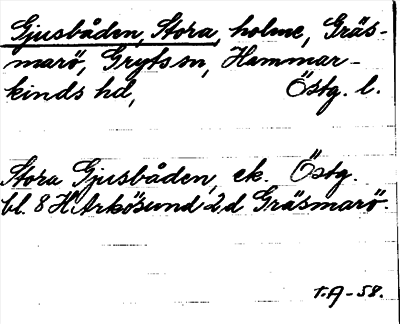 Gjusbåden, Stora, holme, Gräs-
marö, Gryts sn, Hammar-
kinds hd, Östg. l.
Stora Gjusbåden, ek. Östg.
bl. 8 H Arkösund 2d Gräsmarö.
T.A-58.